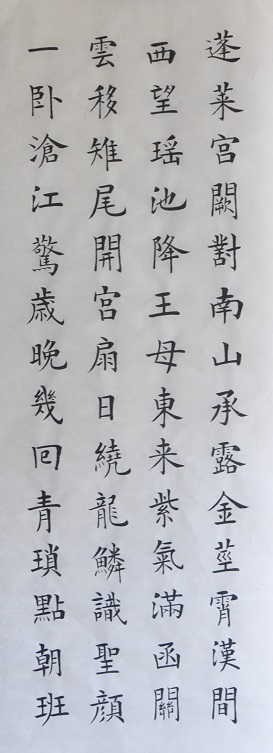 蓬萊宮闕對南山承露金莖霄漢間
西望瑶池降王母東来紫氣滿函關
雲移雉尾開宮扇日繞龍鱗識聖顔
一卧滄江驚歳晚幾回青瑣點朝班